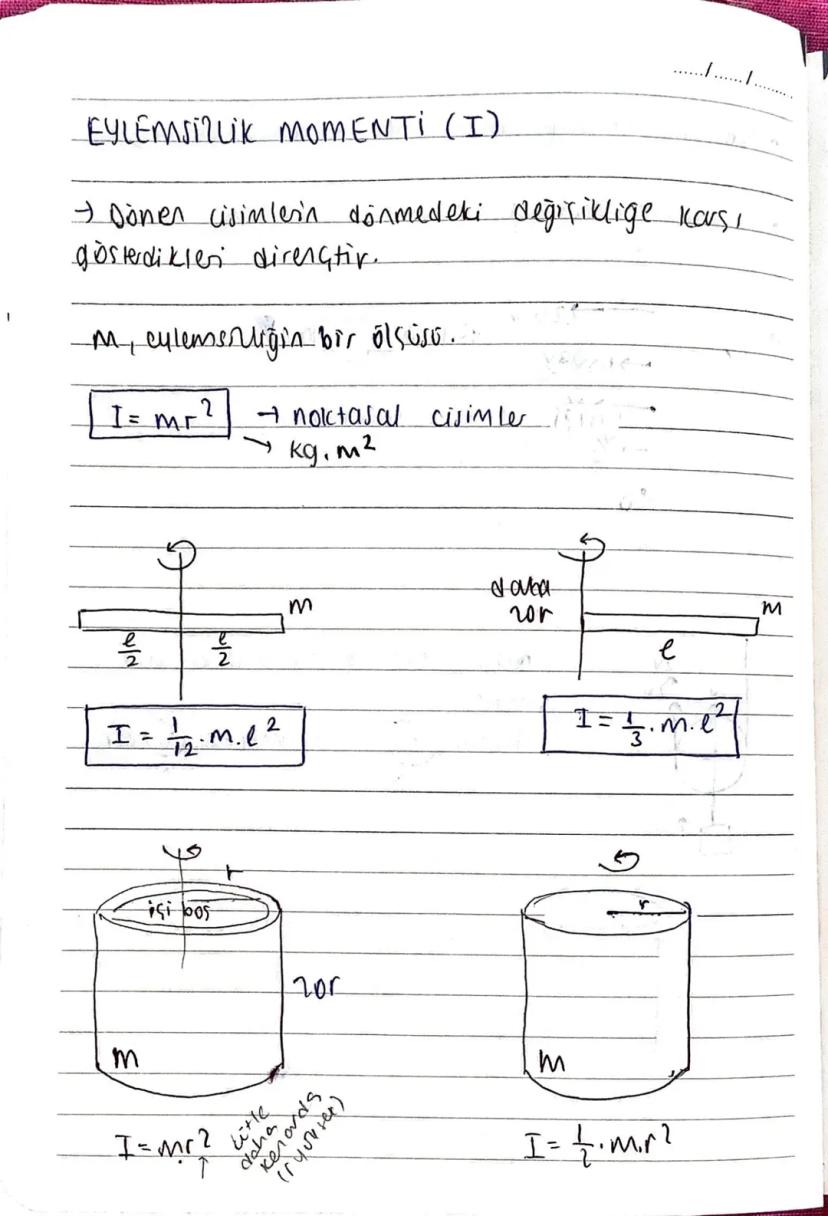 ....../......./..........
EYLEMSİZLİK MOMENTİ (I)
→ Dönen cisimlerin dönmedeki değişikliğe karşı
gösterdikleri dirençtir.
m, eylemsizliğin bir ölçüsü.
I = mr² → noktasal cisimler
→ kg.m²
m
ℓ/2 ℓ/2
I = 1/12 . m.ℓ²
daha
zor
m
ℓ
I = 1/3 . m.ℓ²
r
içi boş
zor
m
I = mr²
kütle
daha
kenarda
(r yüksek)
r
m
I = 1/2 . m.r²